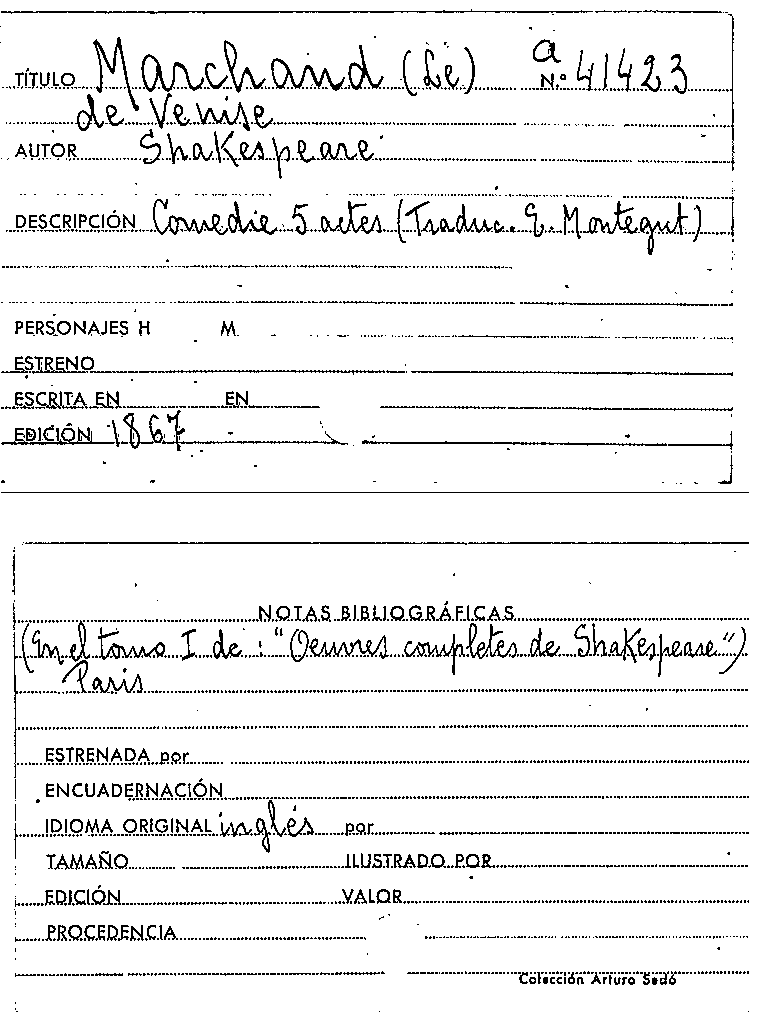 a
TÍTULO Marchand (Le) N.º 41423
de Venise
AUTOR Shakespeare
DESCRIPCIÓN Comedie 5 actes (Traduc. E. Montegut)
PERSONAJES H M.
ESTRENO
ESCRITA EN EN
EDICIÓN 1867
NOTAS BIBLIOGRÁFICAS
(En el tomo I de : "Oeuvres completes de Shakespeare")
Paris
ESTRENADA por
ENCUADERNACIÓN
IDIOMA ORIGINAL inglés por
TAMAÑO ILUSTRADO POR
EDICIÓN VALOR
PROCEDENCIA
Colección Arturo Sedó